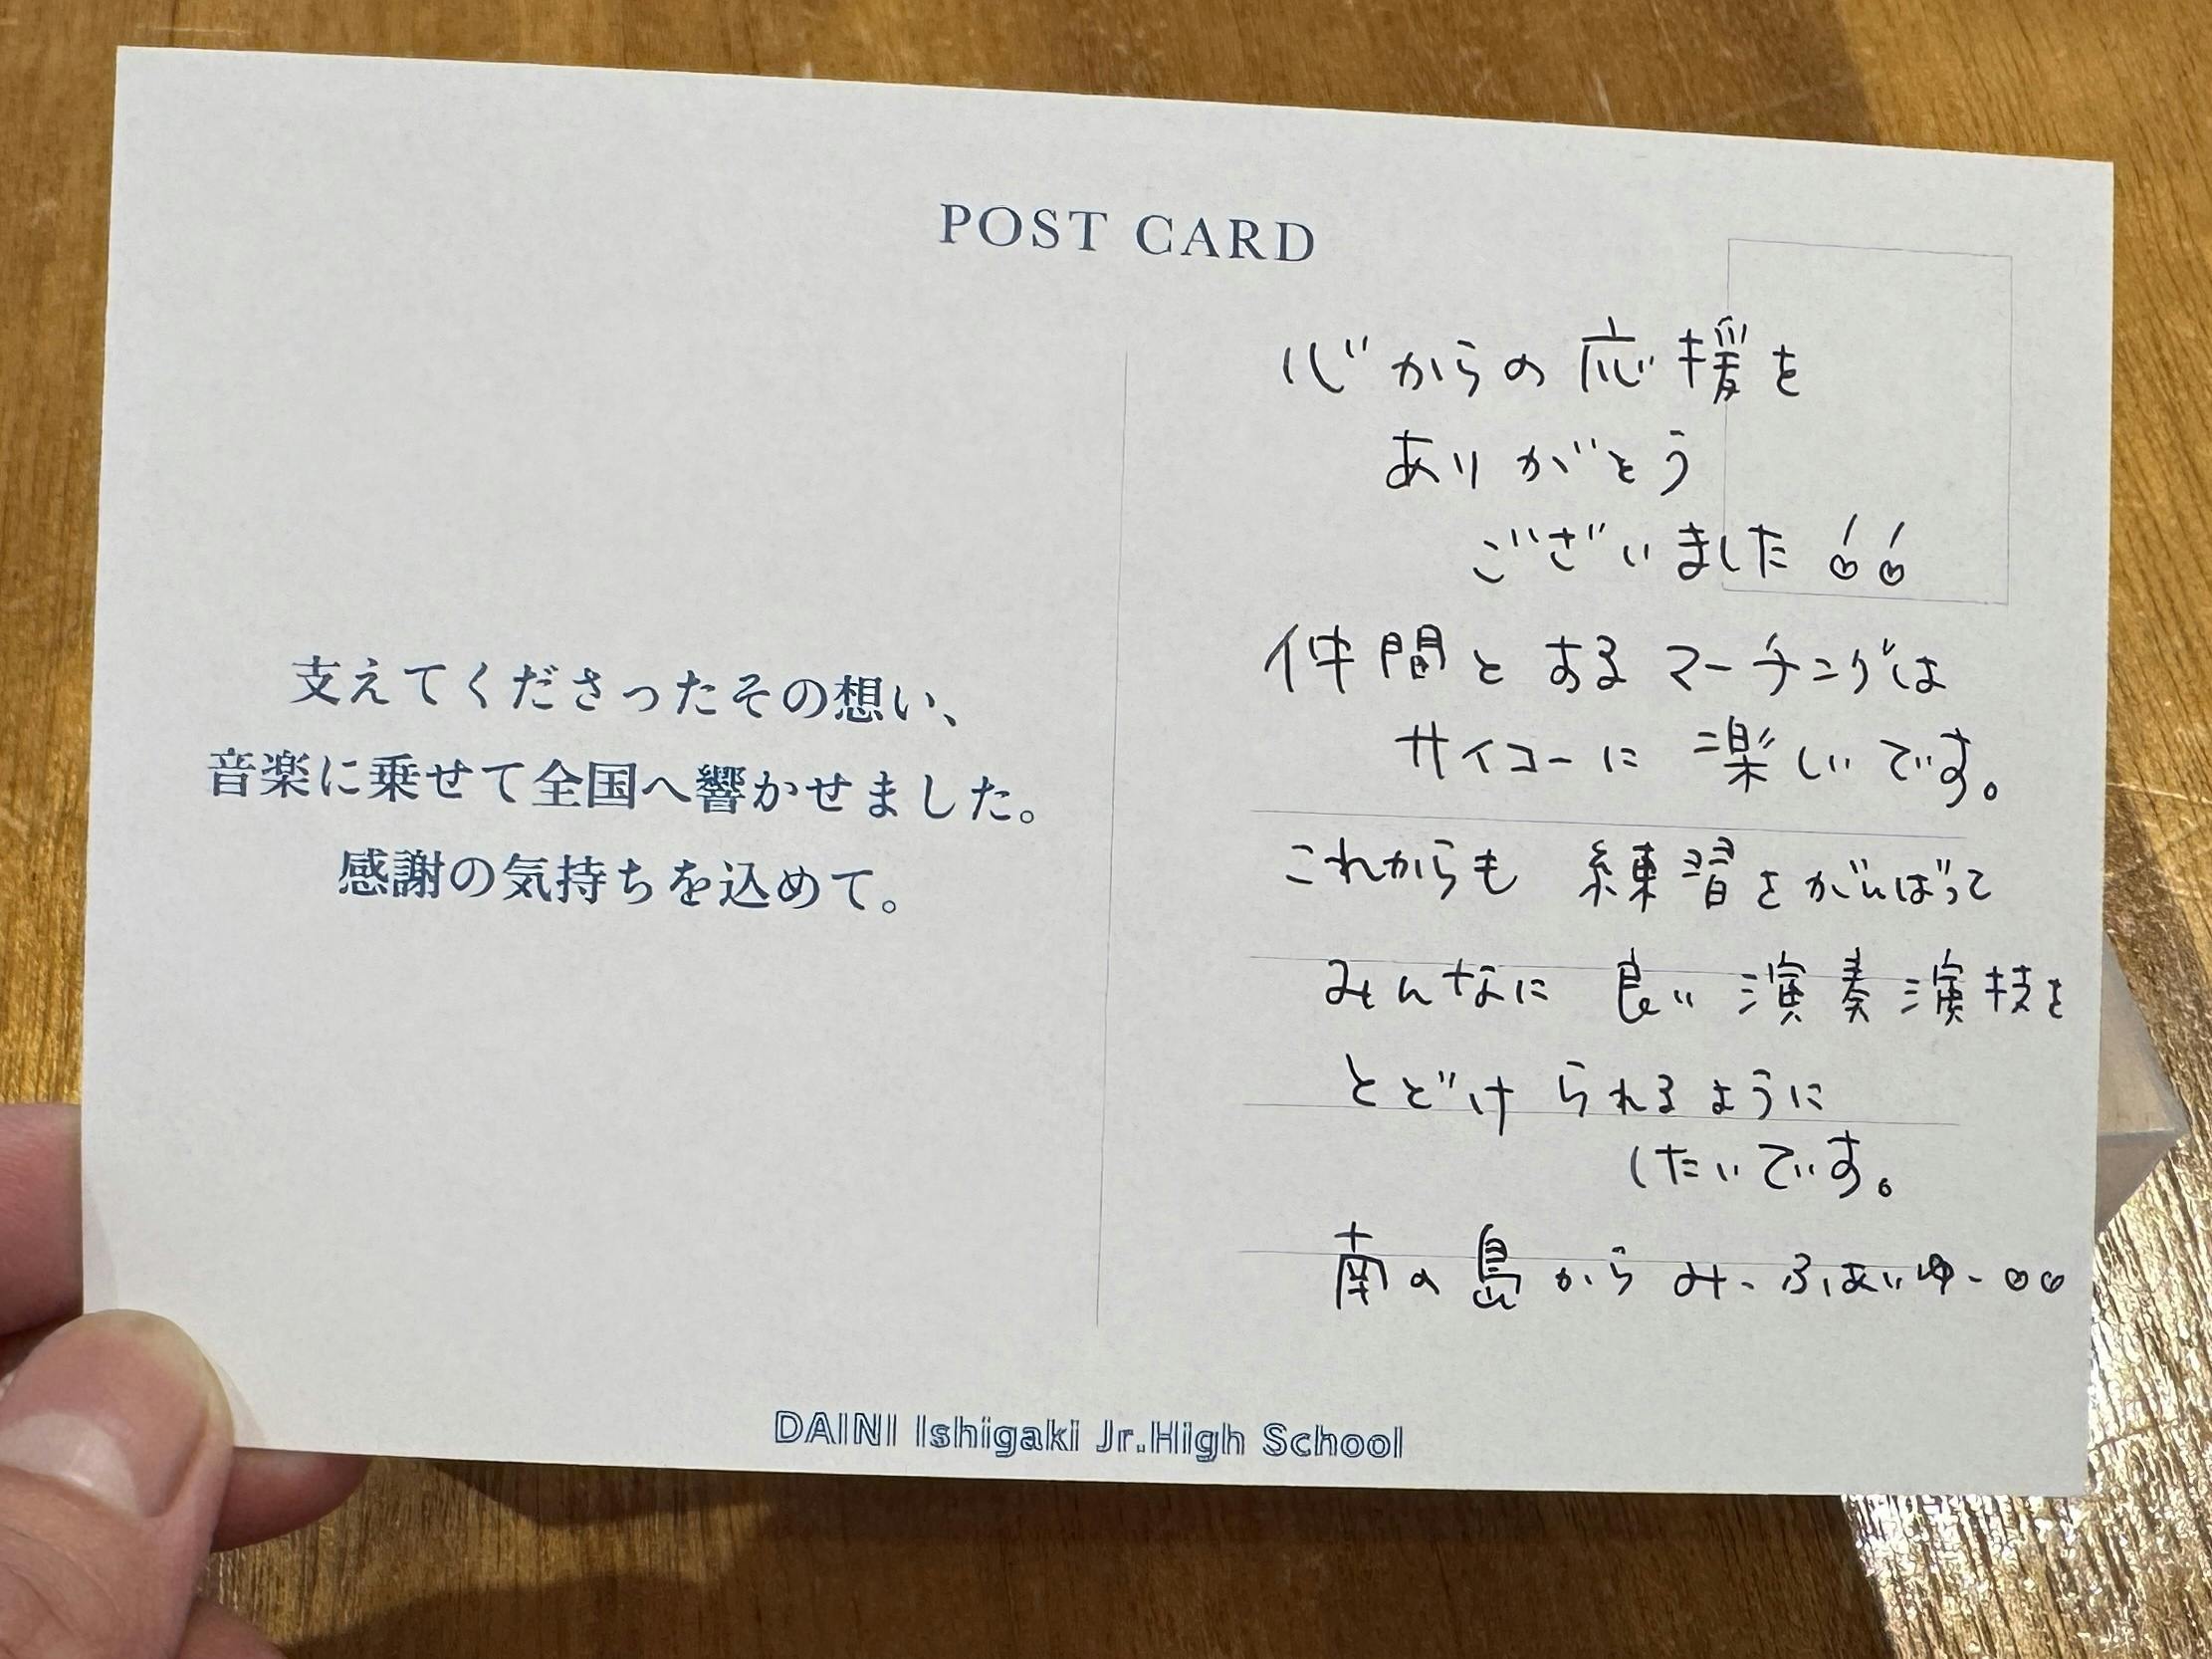 POST CARD
支えてくださったその想い、
音楽に乗せて全国へ響かせました。
感謝の気持ちを込めて。
心からの応援を
ありがとう
ございました!!
仲間とするマーチングは
サイコーに楽しいです。
これからも練習をがんばって
みんなに良い演奏演技を
とどけられるように
したいです。
南の島からみーふぁいゆー♡♡
DAINI Ishigaki Jr.High School